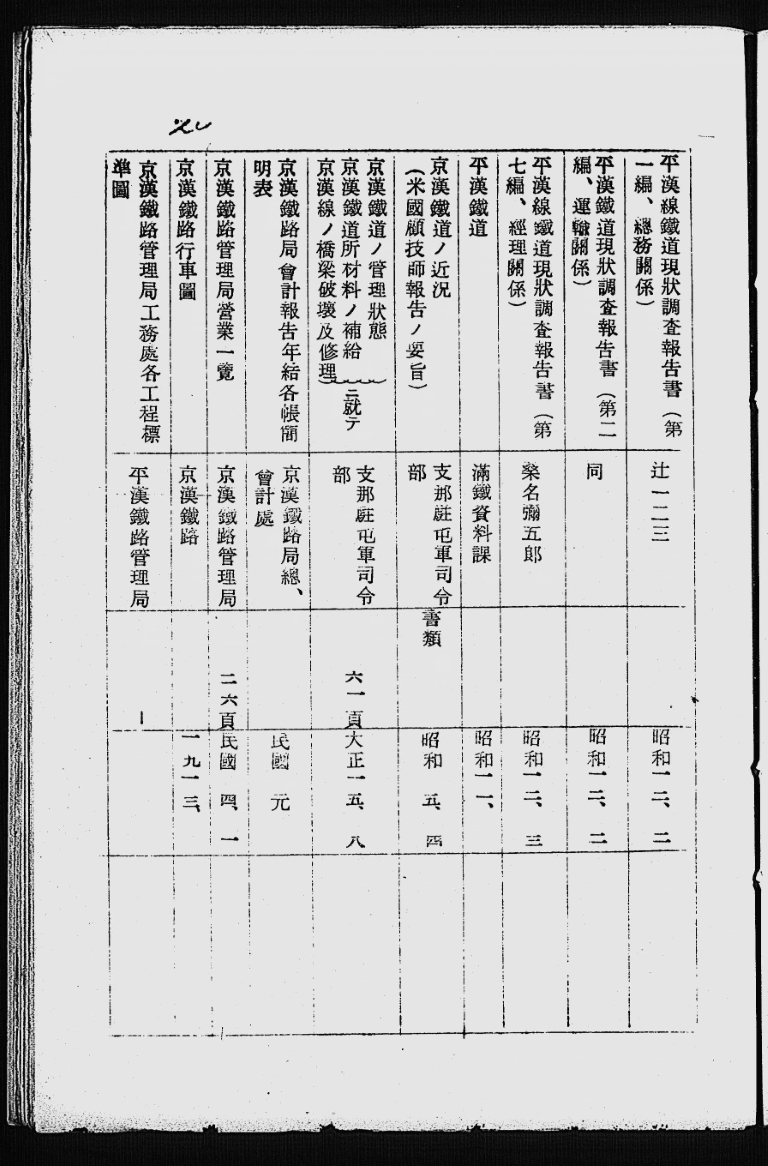 平漢線鐵道現狀調査報告書（第
一編、總務關係）
辻一二三
昭和一二、二
平漢鐵道現狀調査報告書（第二
編、運輸關係）
同
昭和一二、二
平漢線鐵道現狀調査報告書（第
七編、經理關係）
桑名彌五郎
昭和一二、三
平漢鐵道
滿鐵資料課
昭和一一、
京漢鐵道ノ近況
（米國顧技師報告ノ要旨）
支那駐屯軍司令
部
書類
昭和　五、四
京漢鐵道ノ管理狀態
京漢鐵道所材料ノ補給
京漢線ノ橋梁破壞及修理
ニ就テ
支那駐屯軍司令
部
六一頁
大正一五、八
京漢鐵路局會計報告年結各帳簡
明表
京漢鐵路局總、
會計處
民國　元
京漢鐵路管理局營業一覽
京漢鐵路管理局
二六頁
民國　四、一
京漢鐵路行車圖
京漢鐵路
一九一三、
京漢鐵路管理局工務處各工程標
準圖
平漢鐵路管理局
一